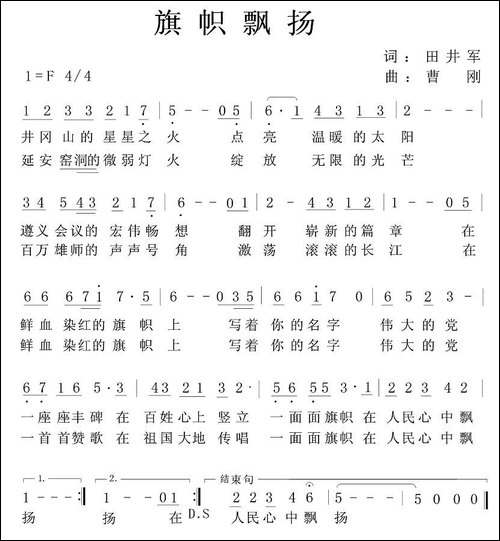 旗帜飘扬
词：田井军
1=F 4/4
曲：曹 刚
1 2 3 3 2 1 7 | 5 - - 0 5 | 6 · 1 4 3 1 3 | 2 - - - |
井冈 山的 星星之 火 点 亮 温暖的太 阳
延安 窑洞的微弱灯 火 绽 放 无限的光 芒
3 4 5 4 3 2 1 7 | 5 - - 7 | 2 - 4 3 1 2 | 1 - - 0 5 |
遵义 会议的 宏伟畅 想 翻 开 崭新的篇 章 在
百万 雄师的 声声号 角 激 荡 滚滚的长 江 在
6 6 6 7 1 7 · 5 | 6 - - 0 3 5 | 6 6 1 7 0 | 6 5 2 3 - |
鲜血 染红的 旗 帜 上 写着 你 的 名 字 伟 大 的 党
鲜血 染红的 旗 帜 上 写着 你 的 名 字 伟 大 的 党
6 7 1 6 5 · 3 | 4 3 2 1 3 2 - | 5 6 5 5 3 · 1 | 2 2 3 4 2 |
一座 座丰 碑 在 百姓 心上 竖立 一面 面旗帜 在 人民心 中飘
一首 首赞 歌 在 祖国 大地 传唱 一面 面旗帜 在 人民心 中飘
1. 2. 结束句
1 - - - :| 1 - - 0 1 :| 2 2 3 4 6 | 5 - - - | 5 - - - 0 ||
扬 扬 在 D.S 人民心 中 飘 扬